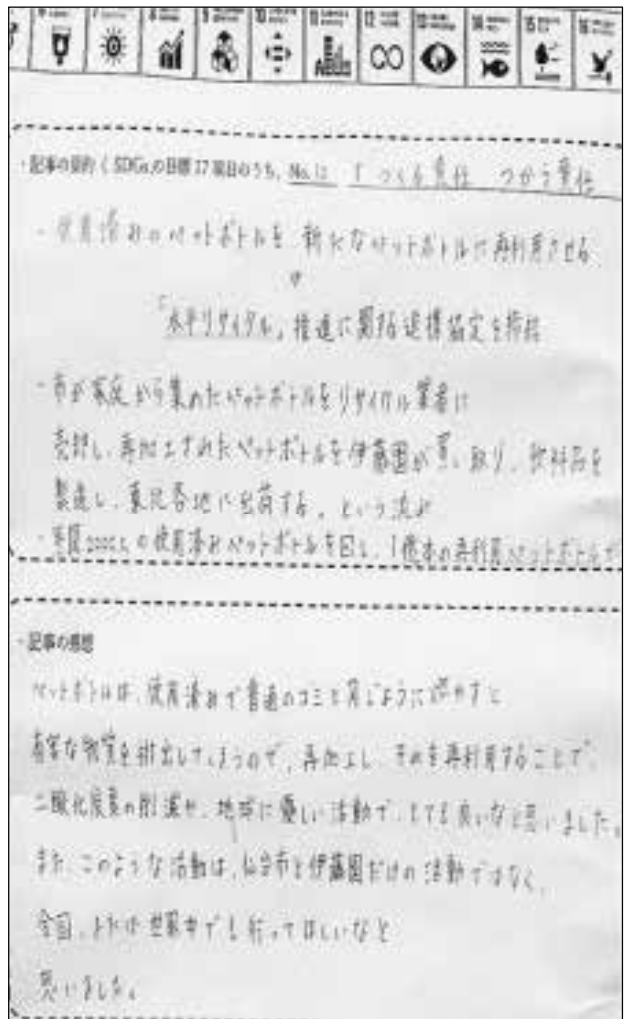 12
14
15
16
・記事の要約 < SDGsの目標 17 項目のうち、No.12 「つくる責任 つかう責任
・使用済みのペットボトルを、新たなペットボトルに再利用させる
「水平リサイクル」推進に関する連携協定を締結
・市が家庭から集めたペットボトルをリサイクル業者に
売却し、再加工されたペットボトルを伊藤園が買い取り、飲料品を
製造し、東北各地に出荷する。という流れ
・年間 の使用済みペットボトルを回し、1億本の再利用ペットボトルが
・記事の感想
ペットボトルは、使用済みで普通のゴミと同じように燃やすと
有害な物質を排出してしまうので、再加工し、それを再利用することで、
二酸化炭素の削減や、地球に優しい活動で、とても良いなと思いました。
また、このような活動は、仙台市と伊藤園だけの活動ではなく、
全国、または世界中でも行ってほしいなと
思いました。